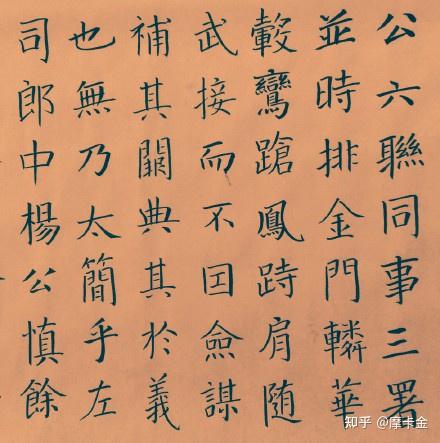 公六聯同事三署
並時排金門轔華
轂鸞蹌鳳跱肩随
武接而不囙僉謀
補其闕典其於義
也無乃太簡乎左
司郎中楊公慎餘
知乎 @摩卡金